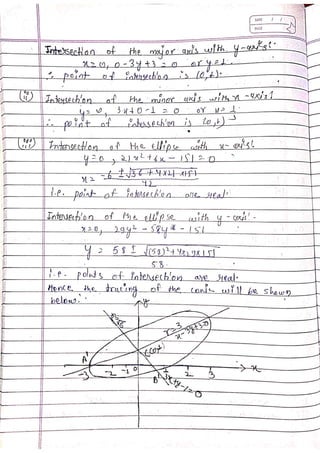 Intersection of the major axis with y-axis:
x=0, 0-3y+3=0 or y=1.
∴ point of intersection is (0,1).
Intersection of the minor axis with x-axis:
y=0, 3x+0-1=0 or
∴ point of intersection is
Intersection of the ellipse with x-axis:
y=0, 21x²+6x-151=0
x = -6 ± √36+4x21x151
42
i.e. point of intersection are real.
Intersection of the ellipse with y-axis:-
x=0, 29y²-58y-151
y = 58 ± √(58)²+4x29x151
58
i.e. points of intersection are real.
Hence the tracing of the conic will be shown
below:-
y
r=3
x-3y+3=0
A'
-3 -2 -1 0 2 3 x
B'
3x+y-1=0